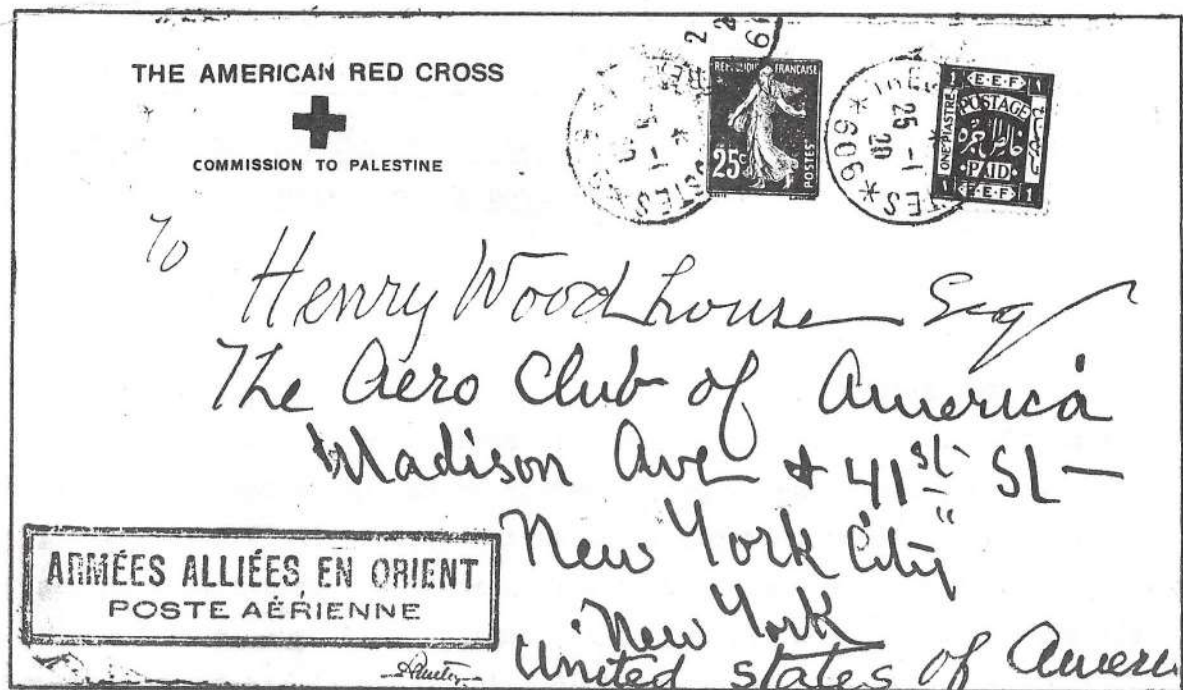 THE AMERICAN RED CROSS
COMMISSION TO PALESTINE
REPUBLIQUE FRANÇAISE
25c
POSTES
25 -1
20
*POSTES*609*
1 E.E.F 1
POSTAGE
ONE PIASTRE
PAID
1 E.E.F 1
To
Henry Woodhouse Esq
The Aero Club of America
Madison Ave + 41st St —
New York City
New York
United States of Ameri
ARMÉES ALLIÉES EN ORIENT
POSTE AÉRIENNE